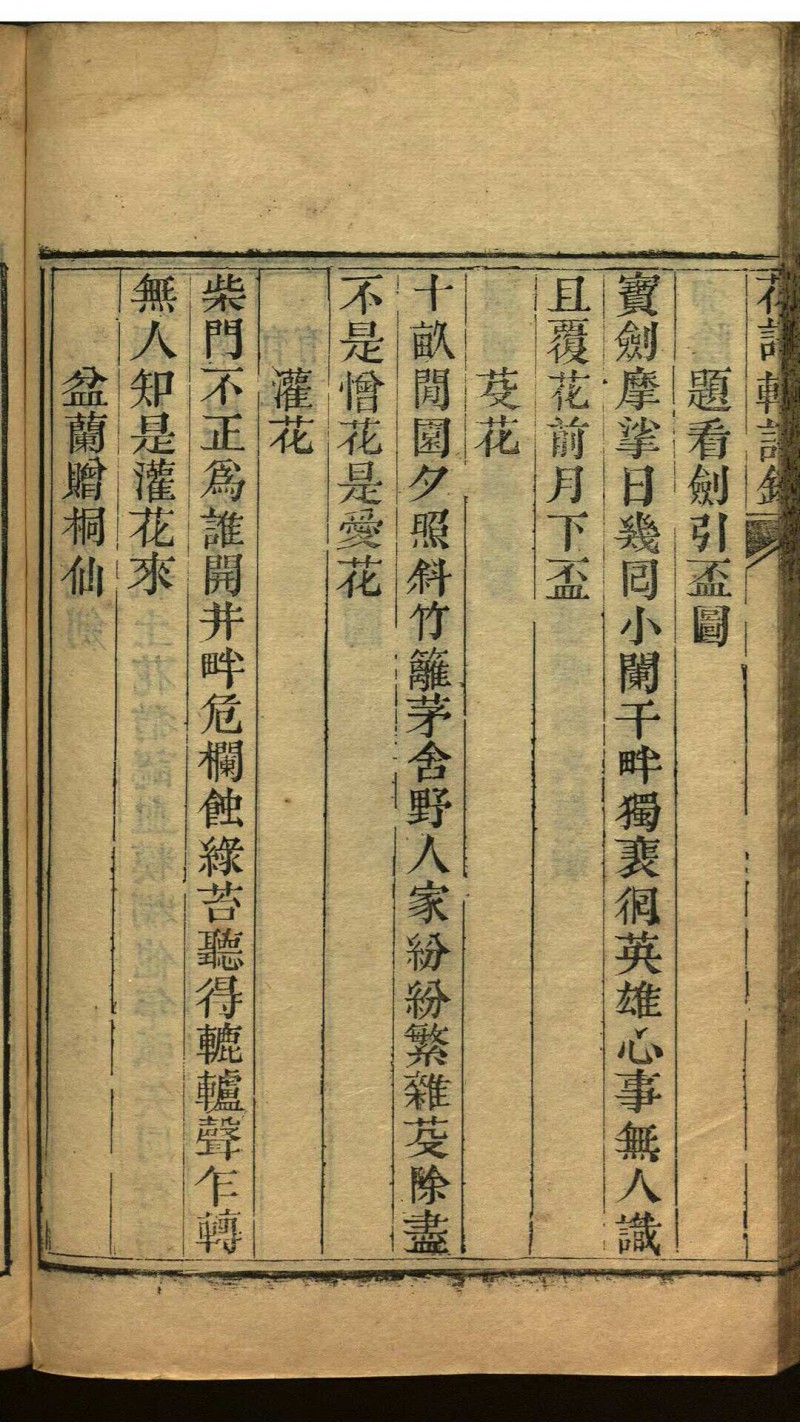 題看劍引盃圖
寶劍摩挲日幾囘小闌干畔獨裵徊英雄心事無人識
且覆花前月下盃
芟花
十畝閒園夕照斜竹籬茅舍野人家紛紛繁雜芟除盡
不是憎花是愛花
灌花
柴門不正爲誰開井畔危欄蝕綠苔聽得轆轤聲乍轉
無人知是灌花來
盆蘭贈桐仙